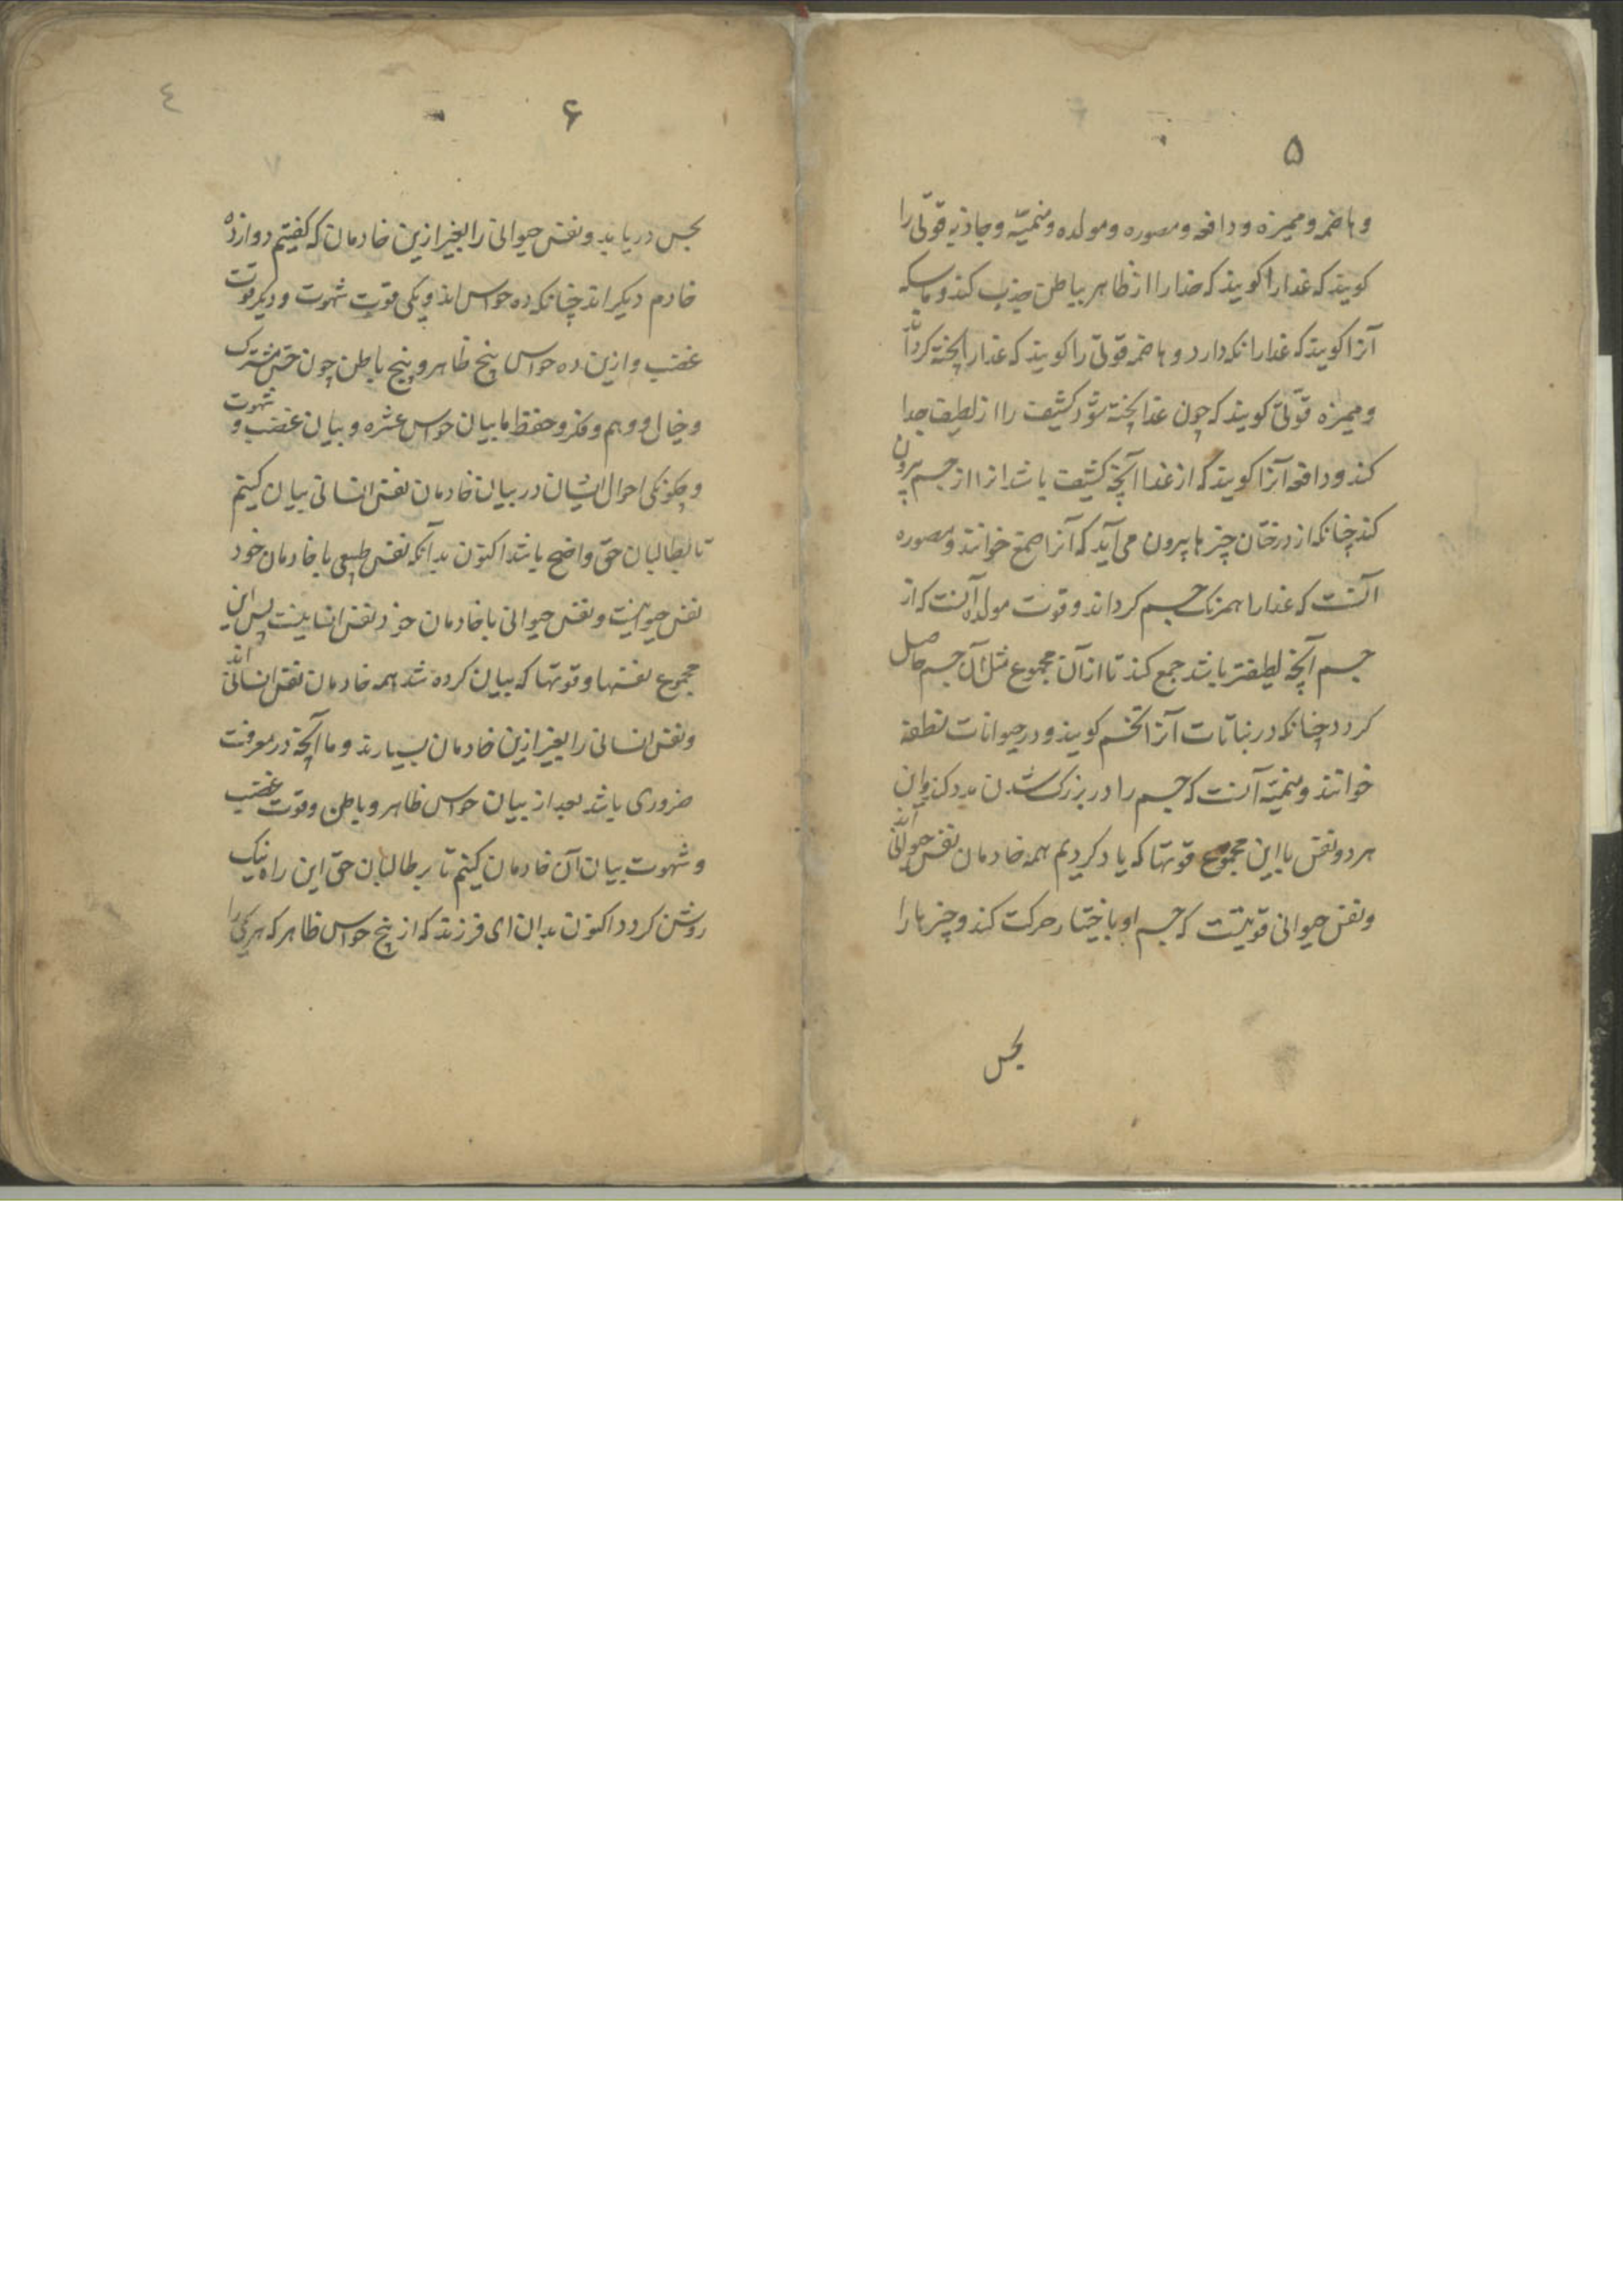 ۵
و هاضمه و ممیزه و دافعه و مصوره و مولده و منمیّه و جاذبه قوّتی را
کویند که غدارا کویند که غدارا از ظاهر بباطن جذب کند و ماسکه
آنرا کویند که غدارا نکه دارد و هاضمه قوّتی را کویند که غدارا پخته کرداند
و ممیزه قوّتی کویند که چون غدا پخته شود کثیف را از لطیف جدا
کند و دافعه آنرا کویند که از غدا آنچه کثیف باشد انرا از جسم بیرون
کند چنانکه از درختان چیزها بیرون می آید که آنرا صمغ خوانند و مصوره
آنست که غدارا همرنک جسم کرداند و قوت مولده آنست که از
جسم آنچه لطیفتر باشد جمع کند تا از آن مجموع مثل آن جسم حاصل
کردد چنانکه در نباتات آنرا تخم کویند و در حیوانات نطفه
خوانند و منمیّه آنست که جسم را در بزرک شدن مدد کند و این
هر دو نفس با این مجموع قوتها که یاد کردیم همه خادمان نفس حیوانی اند
و نفس حیوانی قوتیست که جسم او باختیار حرکت کند و چیزها را
بحس
۶
٤
بحس دریابد و نفس حیوانی را بغیر ازین خادمان که کفتیم دوازده
خادم دیکر اند چنانکه ده حواس اند و یکی قوت شهوت و دیکر قوت
غضب و ازین ده حواس پنج ظاهر و پنج باطن چون حسّ مشترک
و خیال و وهم و فکر و حفظ ما بیان حواس عشره و بیان غضب و شهوت
و چکونکی احوال ایشان در بیان خادمان نفس انسانی بیان کنیم
تا بطالبان حق واضح باشد اکنون بدآنکه نفس طبیعی با خادمان خود
نفس حیوانیست و نفس حیوانی با خادمان خود نفس انسانیست پس این
مجموع نفسها و قوتها که بیان کرده شد همه خادمان نفس انسانی اند
و نفس انسانی را بغیر ازین خادمان بسیارند و ما آنچه در معرفت
ضروری باشد بعد از بیان حواس ظاهر و باطن و قوت غضب
و شهوت بیان آن خادمان کنیم تا بر طالبان حق این راه نیک
روشن کردد اکنون بدان ای فرزند که از پنج حواس ظاهر که هر یکی را